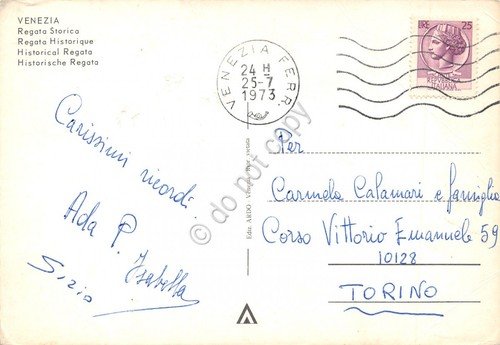 VENEZIA
Regata Storico
Regata Historique
Historical Regata
Historische Regata
VENEZIA FERR.
24 H
25-7
1973
LIRE 25
ITALIANA
Carissimi ricordi
Ada P.
Isabella
do not copy
Ediz. ARDO
Per
Carmela Calamari e famiglia
Corso Vittorio Emanuele 59
10128
TORINO